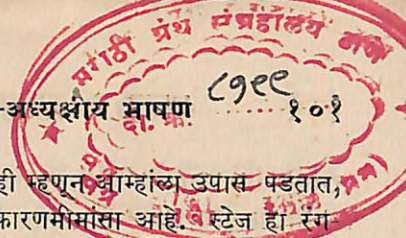 मराठी ग्रंथ संग्रहालय
-अध्यक्षीय भाषण ८१९९ १०१
ही म्हणून आम्हांला उपास पडतात,
कारणमीमांसा आहे. स्टेज हा रंग-